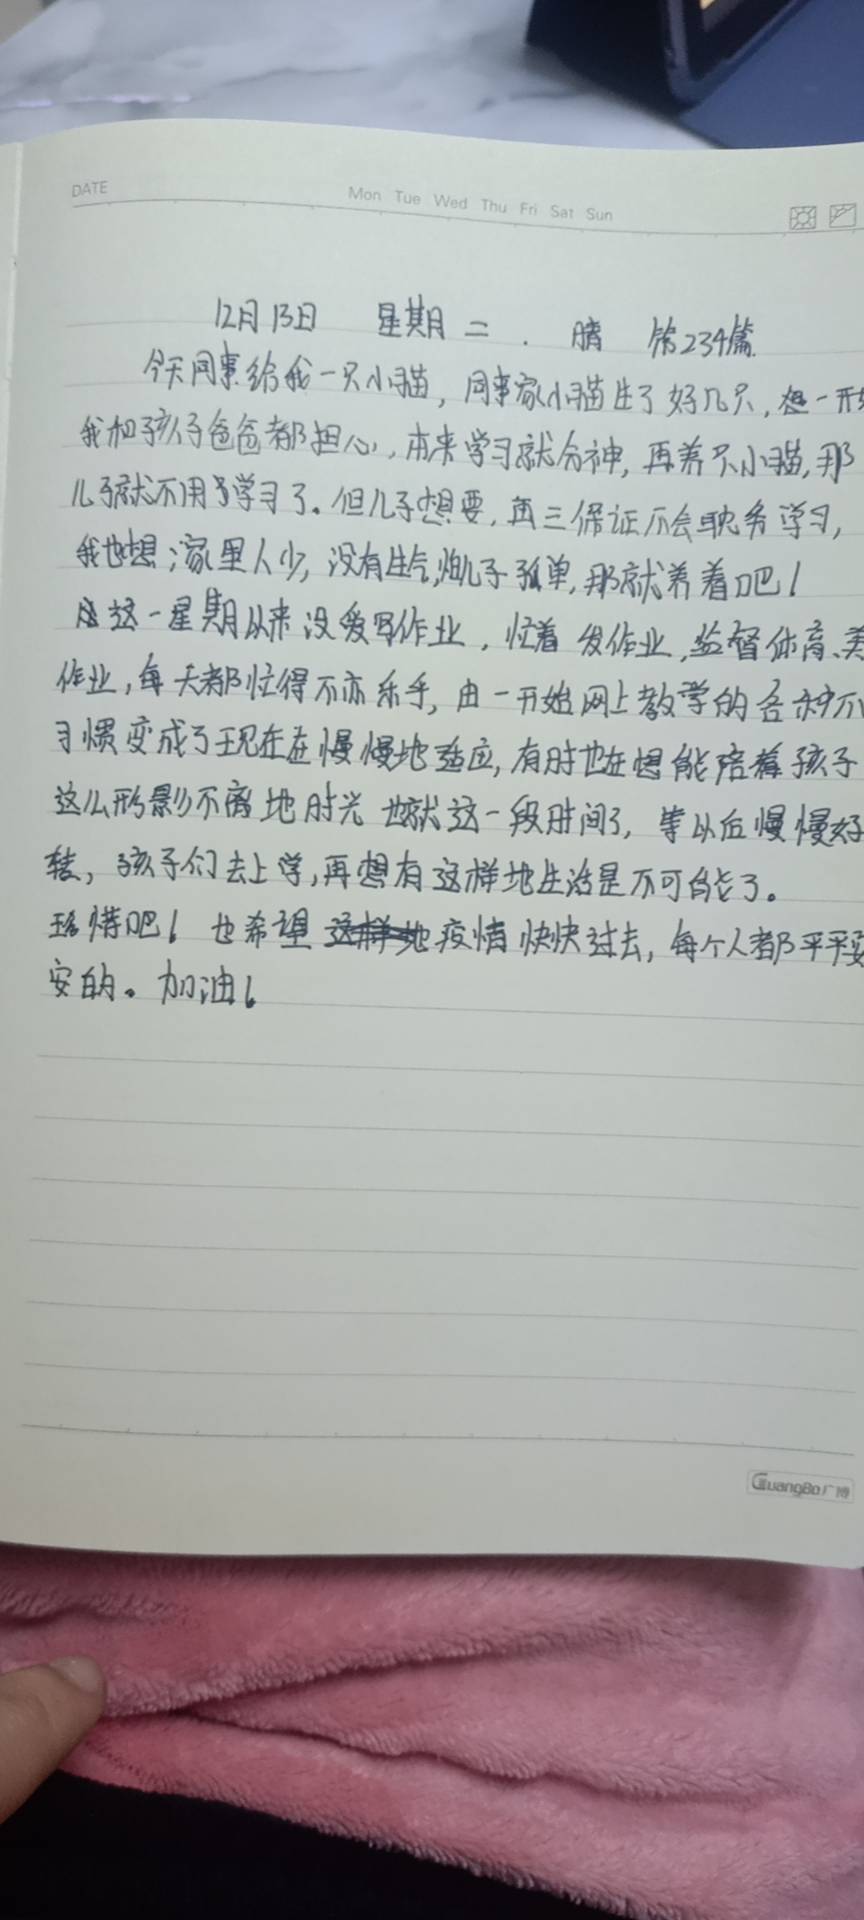 DATE
Mon Tue Wed Thu Fri Sat Sun
12月13日 星期二. 晴 第234篇.
今天同事给我一只小猫，同事家小猫生了好几只，一开
我和孩子爸爸都担心，本来学习就分神，再养只小猫，那
儿子就不用学习了。但儿子想要，再三保证不会耽务学习，
我也想：家里人少，没有生气，怕儿子孤单，那就养着吧！
这一星期以来没爱写作业，忙着发作业，监督体育、美
作业，每天都忙得不亦乐乎，由一开始网上教学的各种不
习惯变成了现在在慢慢地适应，有时也在想能陪着孩子
这么形影不离地时光也就这一段时间了，等以后慢慢好
转，孩子们去上学，再想有这样地生活是不可能了。
珍惜吧！也希望这样地疫情快快过去，每个人都平平安
安的。加油！
GuangBo广博